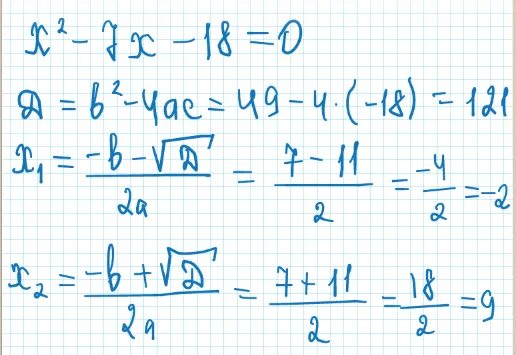 x² - 7x - 18 = 0
D = b² - 4ac = 49 - 4·(-18) = 121
x₁ = (-b - √D)/2a = (7 - 11)/2 = -4/2 = -2
x₂ = (-b + √D)/2a = (7 + 11)/2 = 18/2 = 9